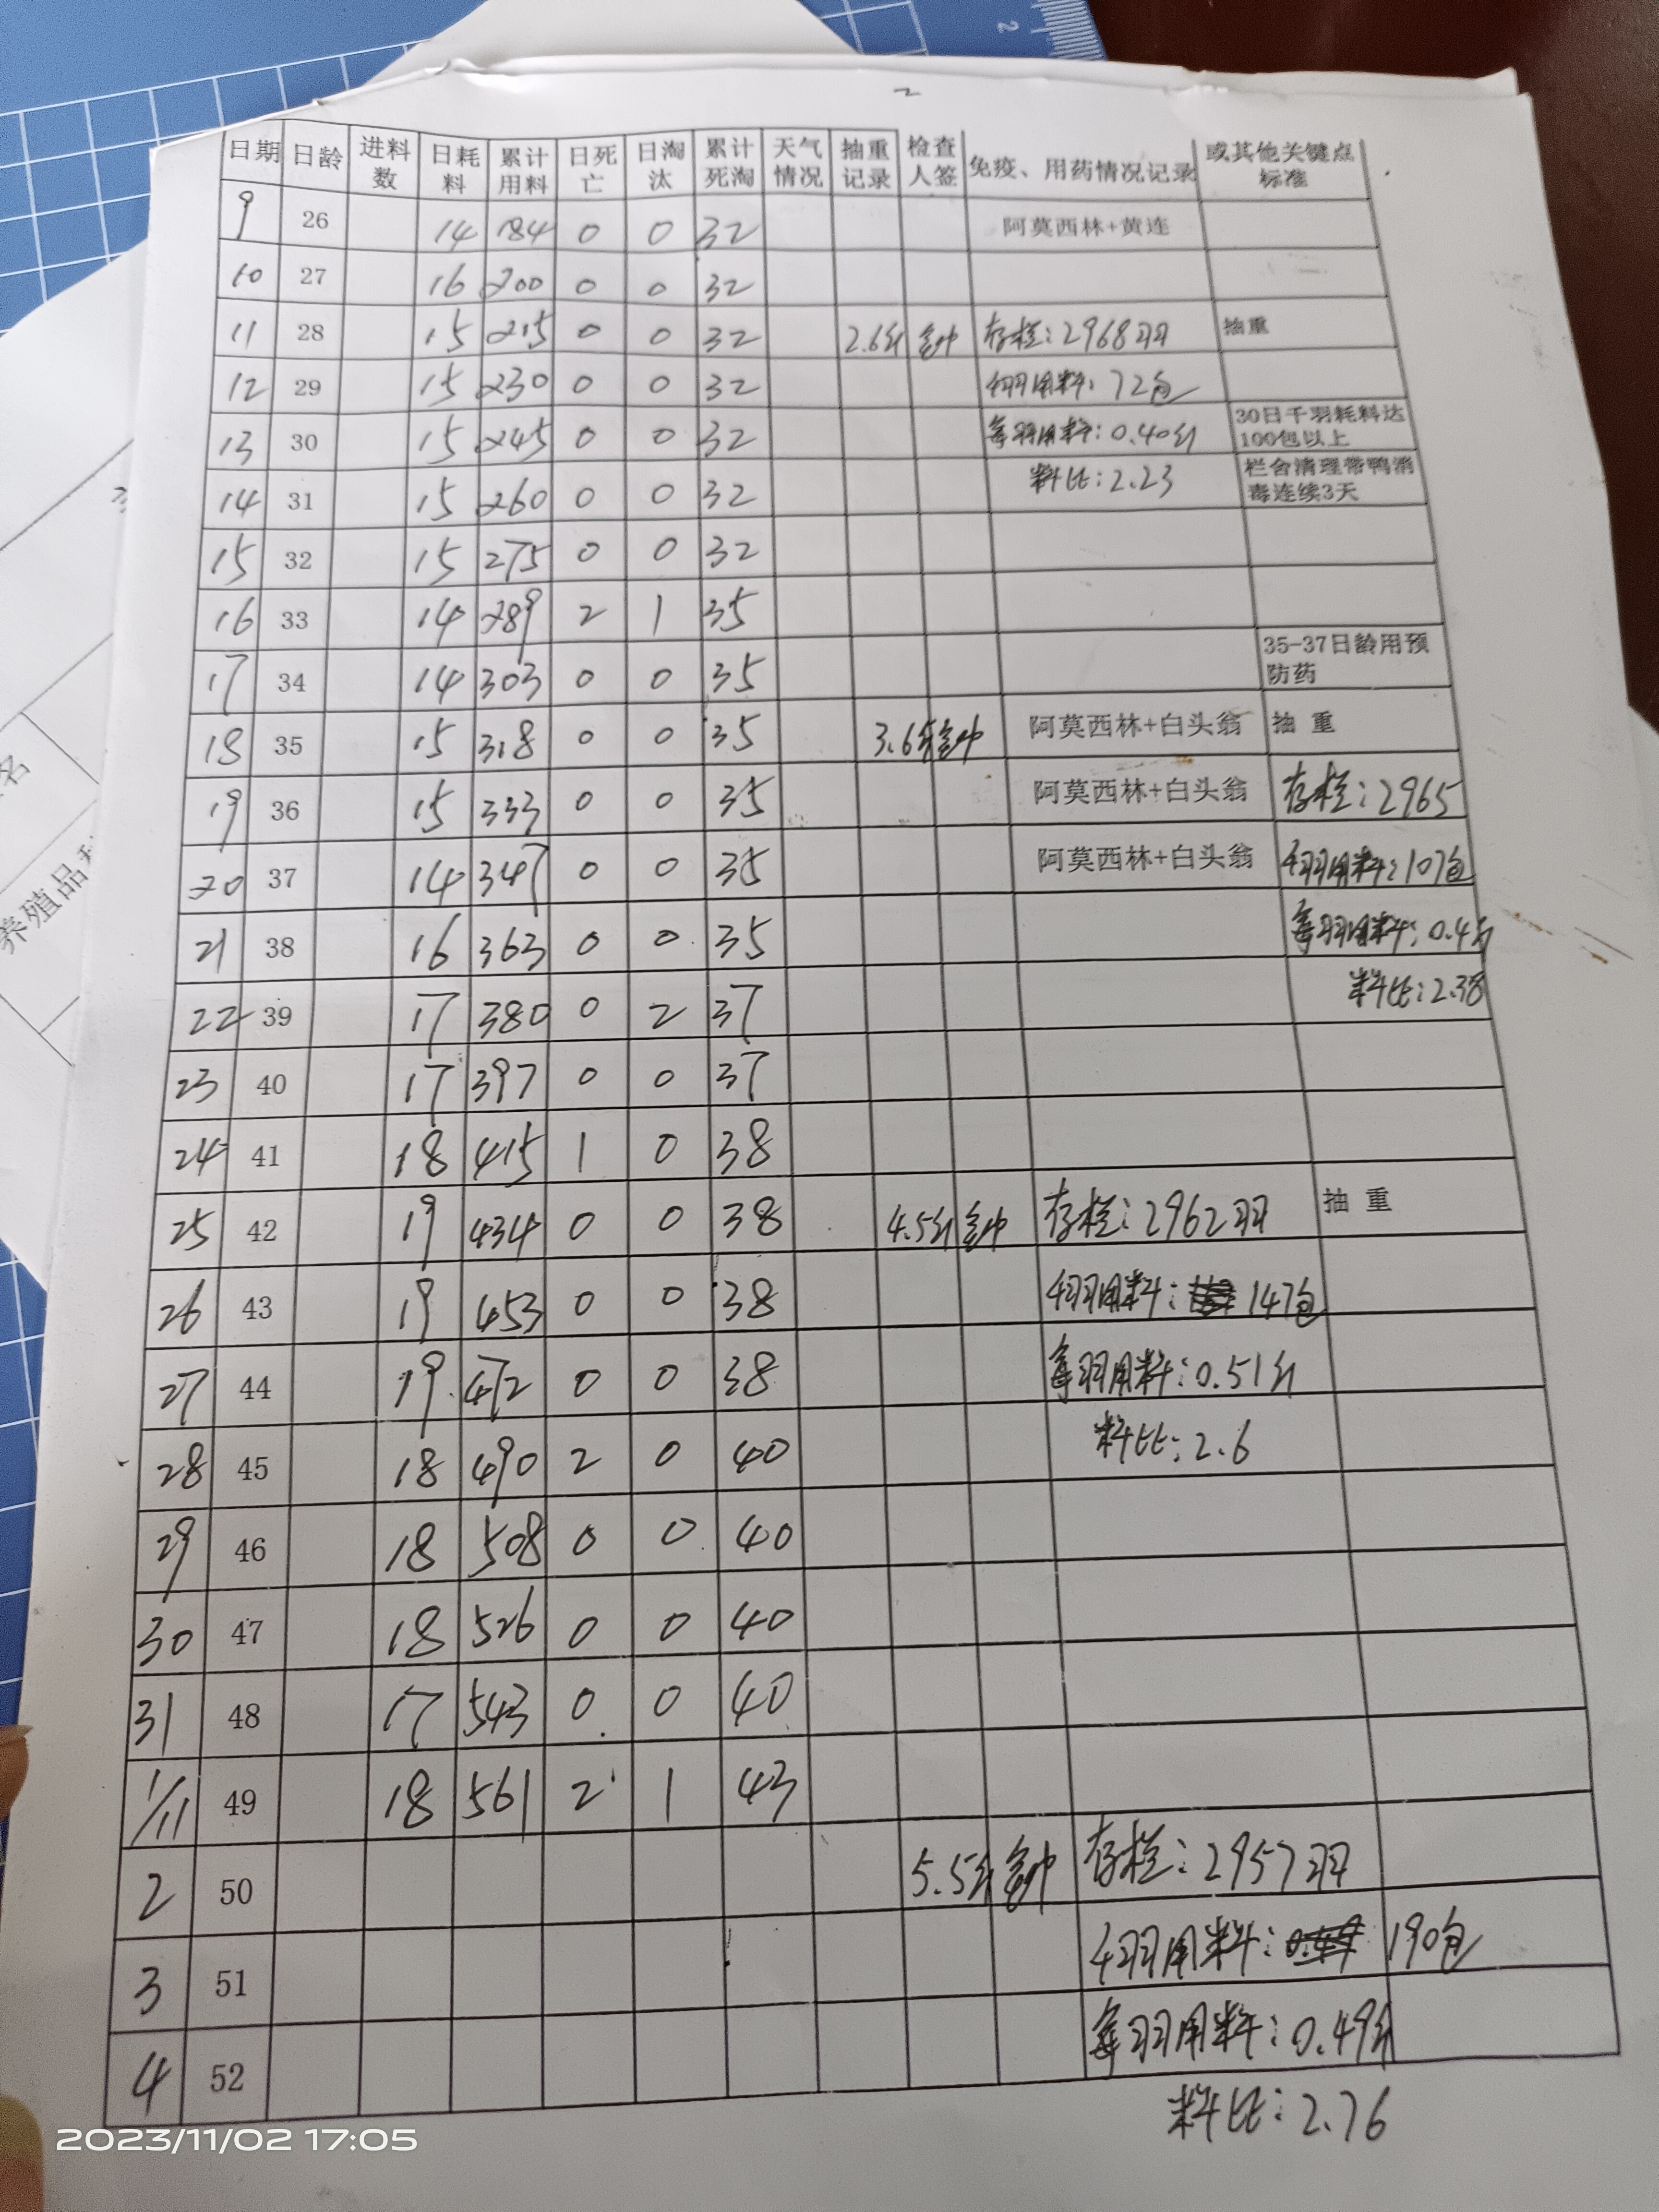 2
日期 日龄 进料数 日耗料 累计用料 日死亡 日淘汰 累计死淘 天气情况 抽重记录 检查人签 免疫、用药情况记录 或其他关键点标准
9 26 14 184 0 0 32 阿莫西林+黄连
10 27 16 200 0 0 32
11 28 15 215 0 0 32 2.6斤 存栏:2968羽 抽重
12 29 15 230 0 0 32 千羽用料:72包
13 30 15 245 0 0 32 每羽用料:0.40斤 30日千羽耗料达100包以上
14 31 15 260 0 0 32 料比:2.23 栏舍清理带鸭消毒连续3天
15 32 15 275 0 0 32
16 33 14 289 2 1 35
17 34 14 303 0 0 35 35-37日龄用预防药
18 35 15 318 0 0 35 3.6斤 阿莫西林+白头翁 抽 重
19 36 15 333 0 0 35 阿莫西林+白头翁 存栏:2965
20 37 14 347 0 0 35 阿莫西林+白头翁 千羽用料:107包
21 38 16 363 0 0 35 每羽用料:0.4斤
22 39 17 380 0 2 37 料比:2.38
23 40 17 397 0 0 37
24 41 18 415 1 0 38
25 42 19 434 0 0 38 4.5斤 存栏:2962羽 抽 重
26 43 19 453 0 0 38 千羽用料:147包
27 44 19 472 0 0 38 每羽用料:0.51斤
28 45 18 490 2 0 40 料比:2.6
29 46 18 508 0 0 40
30 47 18 526 0 0 40
31 48 17 543 0 0 40
1/11 49 18 561 2 1 43
2 50 5.5斤 存栏:2957羽
3 51 千羽用料:190包
4 52 每羽用料:0.49斤
料比:2.76
名
养殖品
2023/11/02 17:05